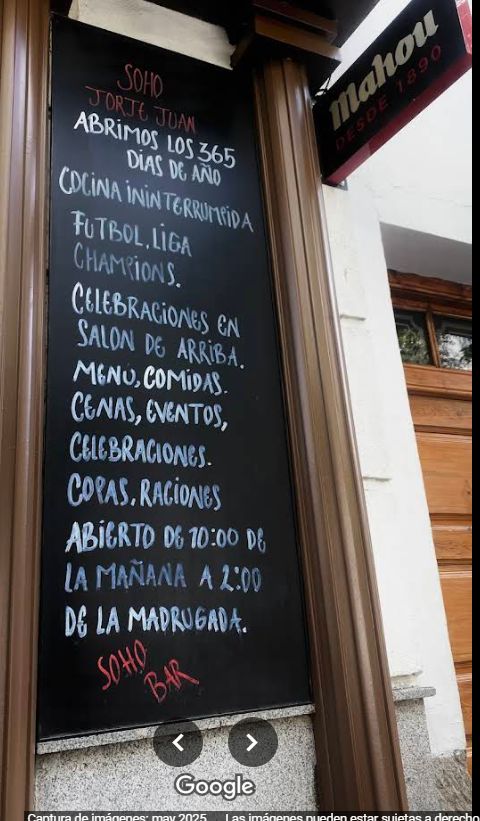 SOHO
JORJE JUAN
ABRIMOS LOS 365
DIAS DE AÑO
COCINA ININTERRUMPIDA
FUTBOL, LIGA
CHAMPIONS.
CELEBRACIONES EN
SALON DE ARRIBA.
MENÚ, COMIDAS.
CENAS, EVENTOS,
CELEBRACIONES.
COPAS, RACIONES
ABIERTO DE 10:00 DE
LA MAÑANA A 2:00
DE LA MADRUGADA.
SOHO
BAR
Mahou
DESDE 1890
Google
Captura de imágenes: may 2025 Las imágenes pueden estar sujetas a derecho